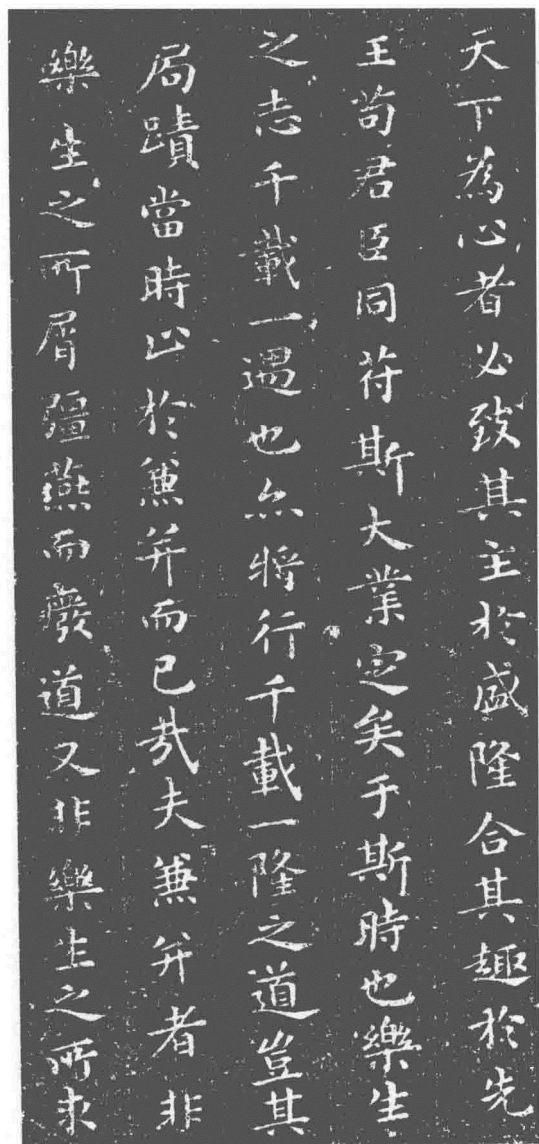 天下為心者必致其主於盛隆合其趣於先
王苟君臣同符斯大業定矣于斯時也樂生
之志千載一遇也亦將行千載一隆之道豈其
局蹟當時止於兼并而已哉夫兼并者非
樂生之所屑彊燕而廢道又非樂生之所求